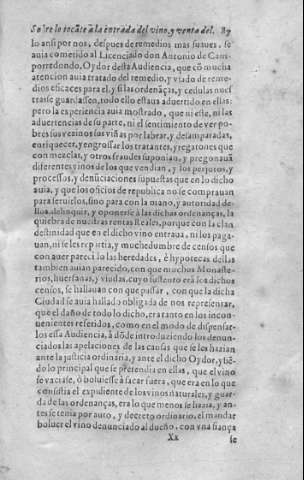 Sobre lo tocãte a la entrada del vino, y venta del. 89
lo ansi por nos, despues de remedios mas suaues, se
auia cometido al Licenciado don Antonio de Cam-
porredondo, Oydor desta Audiencia, que cõ mucha
atencion auia tratado del remedio, y vsado de reme-
dios eficaces para el, y si las ordenãças, y cedulas nues
tras se guardassen, todo ello estaua aduertido en ellas:
pero la experiencia auia mostrado, que ni este, ni las
aduertencias de su parte, ni el sentimiento de ver po-
bres sus vezinos sus viñas por labrar, y desamparadas,
enriquecer, y engrossar los tratantes, y regatones que
con mezclas, y otros fraudes suponian, y pregonauã
diferentes vinos de los que vendian, y los perjuros, y
processos, y denũciaciones supuestas que en lo dicho
auia, y que los oficios de republica no se comprauan
para seruirlos, sino para con la mano, y autoridad de-
llos delinquir, y oponerse à las dichas ordenanças, la
quiebra de nuestras rentas Reales, porque con la clan
destinidad que en el dicho vino entraua, ni los paga-
uan, ni se les repartia, y muchedumbre de censos que
con auer parecido las heredades, è hypotecas dellas
tambien auian parecido, con que muchos Monaste-
rios, huerfanas, y viudas, cuyo sustento era sola dichos
censos, se hallauan con que passar, con que la dicha
Ciudad se auia hallado obligada de nos representar,
que el daño de todo lo dicho, era tanto en los incon-
uenientes referidos, como en el modo de dispensar-
los essa Audiencia, à dõde introduziendo los denun-
ciados las apelaciones de las causas que se les hazian
ante la justicia ordinaria, y ante el dicho Oydor, y sẽ-
do lo principal que se pretendia en ellas, que el vino
se vaziasse, ò boluiesse à sacar fuera, que era en lo que
consistia el expidiente de los vinos naturales, y guar-
da de las ordenanças, era lo que menos se hazia, y an-
tes se tenia por auto, y decreto ordinario, el mandar
boluer el vino denunciado al dueño, con vna fiança
Xx se